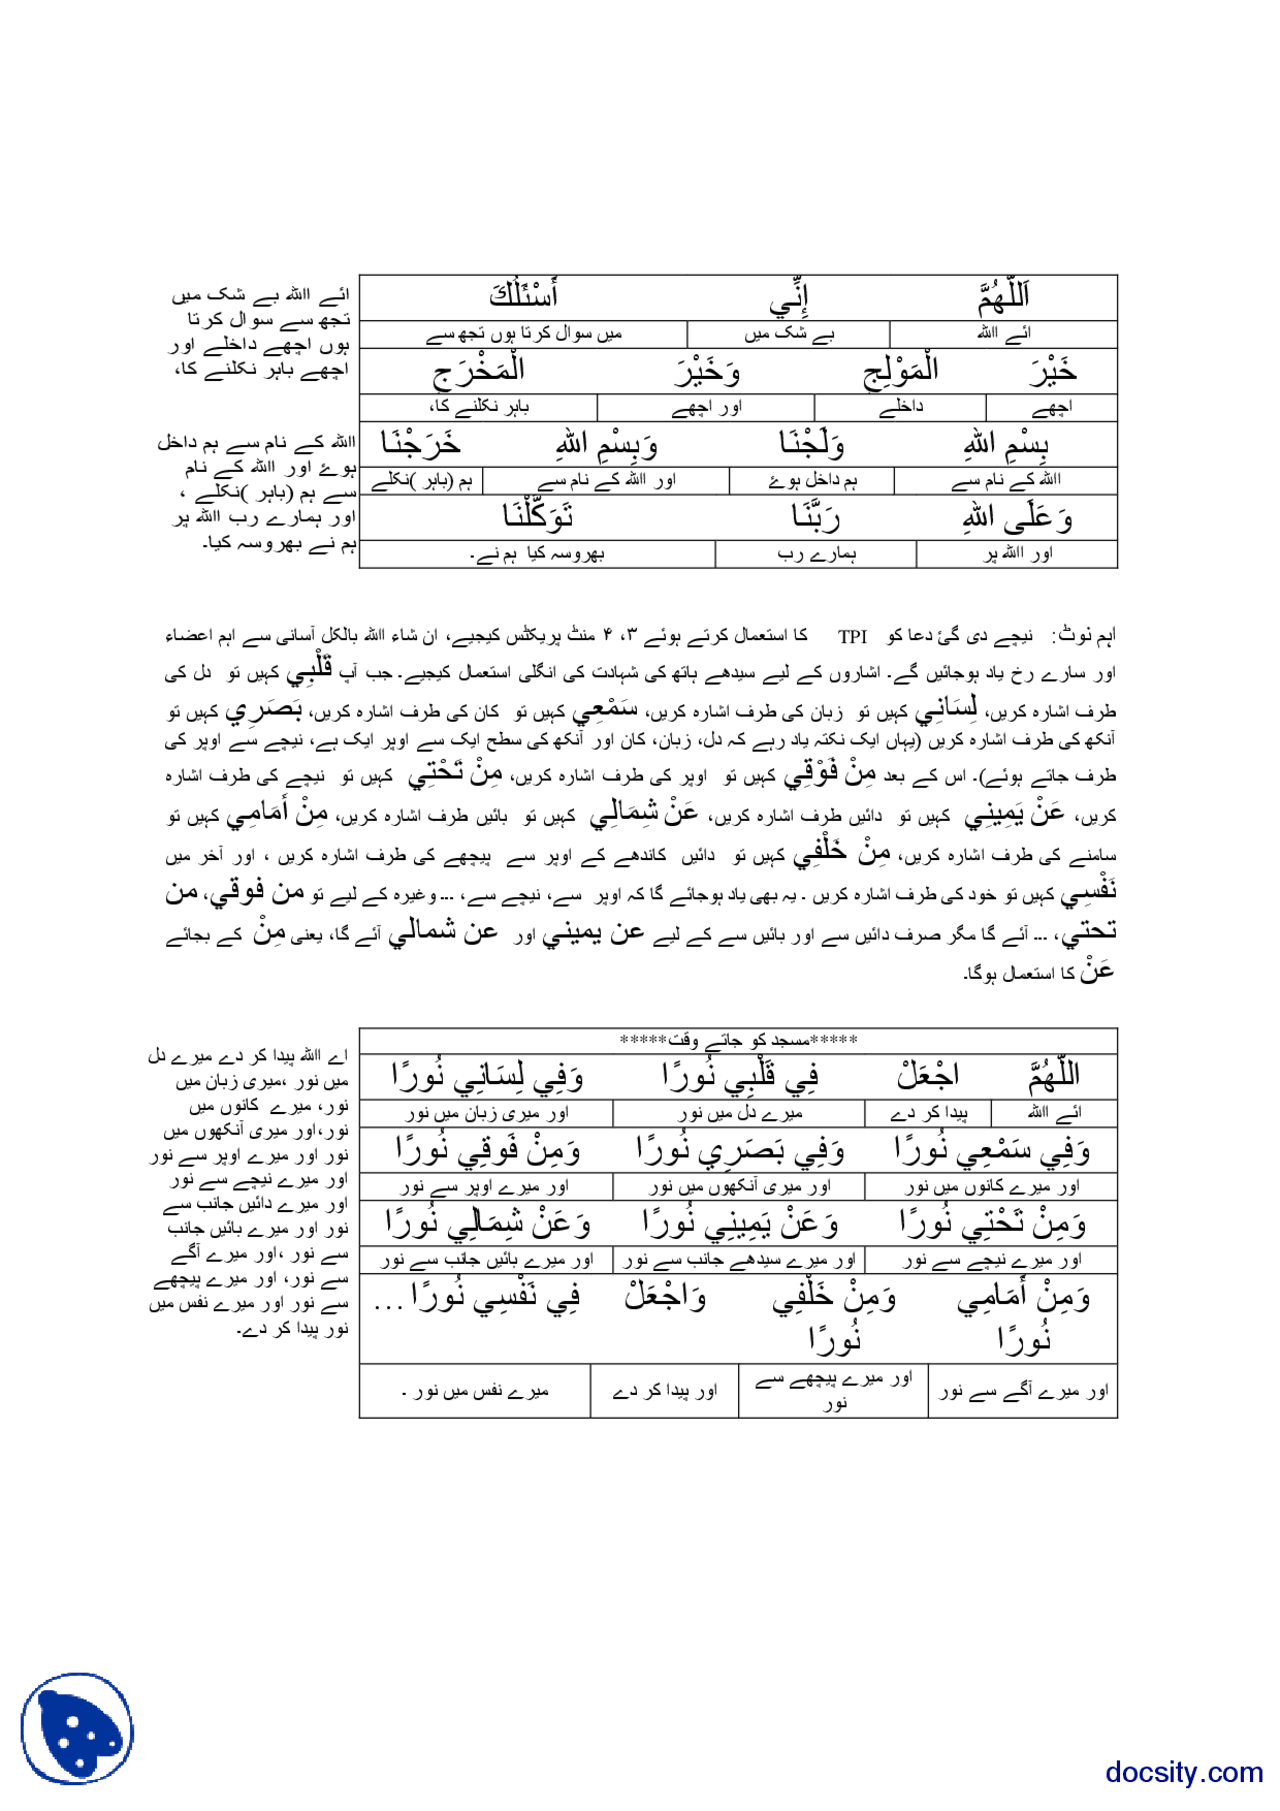 اَللّٰهُمَّ إِنِّي أَسْئَلُكَ
ائے اﷲ بے شک میں میں سوال کرتا ہوں تجھ سے
خَيْرَ الْمَوْلِجِ وَخَيْرَ الْمَخْرَجِ
اچھے داخلے اور اچھے باہر نکلنے کا،
بِسْمِ اللهِ وَلَجْنَا وَبِسْمِ اللهِ خَرَجْنَا
اﷲ کے نام سے ہم داخل ہوۓ اور اﷲ کے نام سے ہم (باہر )نکلے
وَعَلَى اللهِ رَبَّنَا تَوَكَّلْنَا
اور اﷲ پر ہمارے رب بھروسہ کیا ہم نے۔
ائے اﷲ بے شک میں
تجھ سے سوال کرتا
ہوں اچھے داخلے اور
اچھے باہر نکلنے کا،
اﷲ کے نام سے ہم داخل
ہوۓ اور اﷲ کے نام
سے ہم (باہر )نکلے ،
اور ہمارے رب اﷲ پر
ہم نے بھروسہ کیا۔
اہم نوٹ: نیچے دی گئ دعا کو TPI کا استعمال کرتے ہوئے ۳، ۴ منٹ پریکٹس کیجیے، ان شاء اﷲ بالکل آسانی سے اہم اعضاء
اور سارے رخ یاد ہوجائیں گے۔ اشاروں کے لیے سیدھے ہاتھ کی شہادت کی انگلی استعمال کیجیے۔ جب آپ قَلْبِي کہیں تو دل کی
طرف اشارہ کریں، لِسَانِي کہیں تو زبان کی طرف اشارہ کریں، سَمْعِي کہیں تو کان کی طرف اشارہ کریں، بَصَرِي کہیں تو
آنکھ کی طرف اشارہ کریں (یہاں ایک نکتہ یاد رہے کہ دل، زبان، کان اور آنکھ کی سطح ایک سے اوپر ایک ہے، نیچے سے اوپر کی
طرف جاتے ہوئے)۔ اس کے بعد مِنْ فَوْقِي کہیں تو اوپر کی طرف اشارہ کریں، مِنْ تَحْتِي کہیں تو نیچے کی طرف اشارہ
کریں، عَنْ يَمِينِي کہیں تو دائیں طرف اشارہ کریں، عَنْ شِمَالِي کہیں تو بائیں طرف اشارہ کریں، مِنْ أَمَامِي کہیں تو
سامنے کی طرف اشارہ کریں، مِنْ خَلْفِي کہیں تو دائیں کاندھے کے اوپر سے پیچھے کی طرف اشارہ کریں ، اور آخر میں
نَفْسِي کہیں تو خود کی طرف اشارہ کریں ۔ یہ بھی یاد ہوجائے گا کہ اوپر سے، نیچے سے، ... وغیرہ کے لیے تو من فوقي، من
تحتي، ... آئے گا مگر صرف دائیں سے اور بائیں سے کے لیے عن يميني اور عن شمالي آئے گا، یعنی مِنْ کے بجائے
عَنْ کا استعمال ہوگا۔
*****مسجد کو جاتے وقت*****
اللّٰهُمَّ اجْعَلْ فِي قَلْبِي نُورًا وَفِي لِسَانِي نُورًا
ائے اﷲ پیدا کر دے میرے دل میں نور اور میری زبان میں نور
وَفِي سَمْعِي نُورًا وَفِي بَصَرِي نُورًا وَمِنْ فَوقِي نُورًا
اور میرے کانوں میں نور اور میری آنکھوں میں نور اور میرے اوپر سے نور
وَمِنْ تَحْتِي نُورًا وَعَنْ يَمِينِي نُورًا وَعَنْ شِمَالِي نُورًا
اور میرے نیچے سے نور اور میرے سیدھے جانب سے نور اور میرے بائیں جانب سے نور
وَمِنْ أَمَامِي وَمِنْ خَلْفِي وَاجْعَلْ فِي نَفْسِي نُورًا ...
نُورًا نُورًا
اور میرے آگے سے نور اور میرے پیچھے سے اور پیدا کر دے میرے نفس میں نور ۔
نور
اے اﷲ پیدا کر دے میرے دل
میں نور ،میری زبان میں
نور، میرے کانوں میں
نور،اور میری آنکھوں میں
نور اور میرے اوپر سے نور
اور میرے نیچے سے نور
اور میرے دائیں جانب سے
نور اور میرے بائیں جانب
سے نور ،اور میرے آگے
سے نور، اور میرے پیچھے
سے نور اور میرے نفس میں
نور پیدا کر دے۔
docsity.com